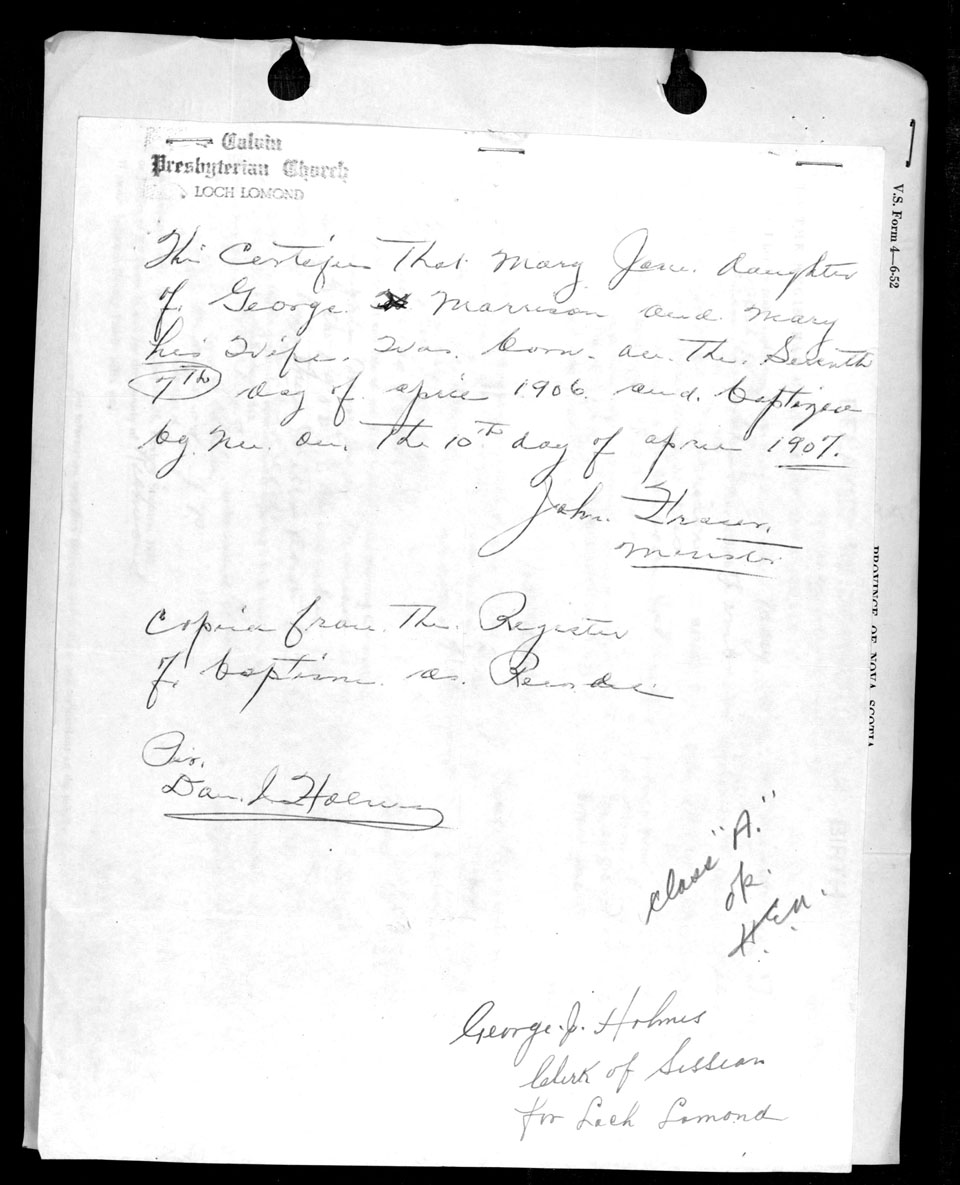 Calvin
Presbyterian Church
LOCH LOMOND
This Certifies That Mary Jane. daughter
of George Morrison and Mary
his Wife. Was. born. on. The. Seventh
7th day of april 1906 and. baptized
by me. on. The 10th day of april 1907.
John. Fraser.
Minister
Copied from The. Register
of baptism. as. Recorded
Per.
Dan. Holmes
class "A."
ok.
H.E.M.
George. J. Holmes
Clerk of Session
for Loch Lomond
V.S. Form 4—6-52
PROVINCE OF NOVA SCOTIA
BIRTH